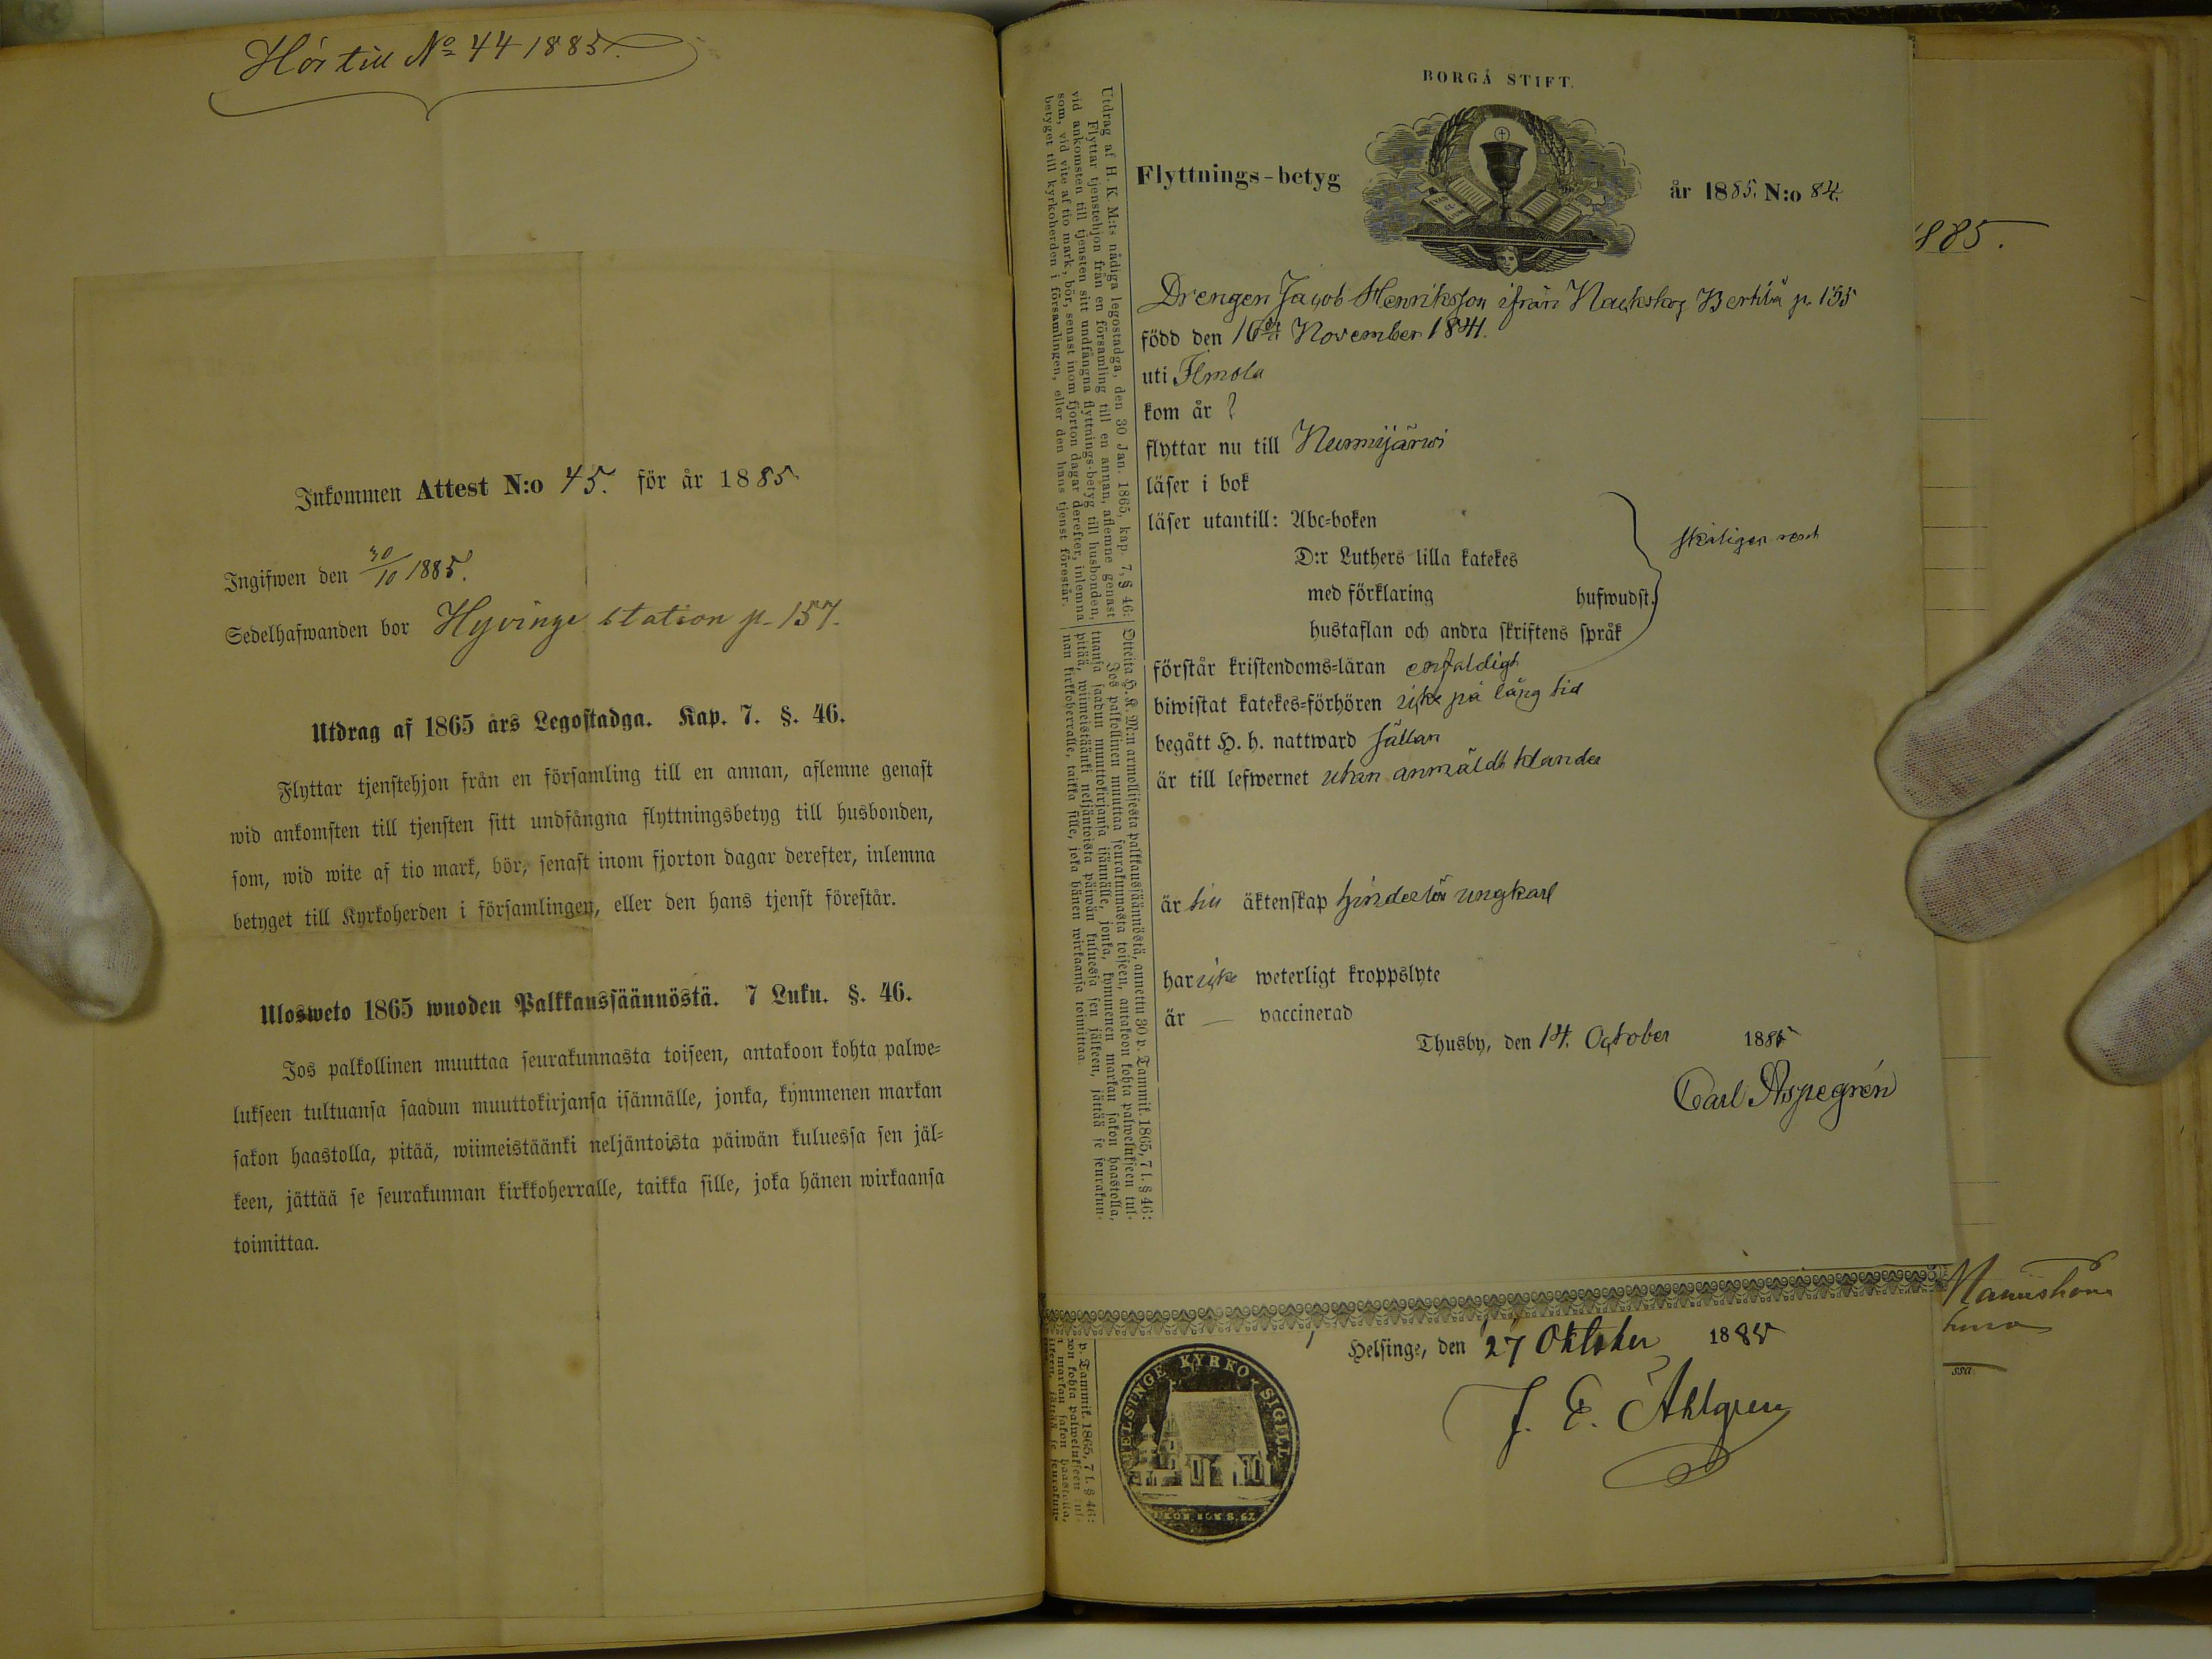 Hör till No 44 1885.
Inkommen Attest N:o 45. för år 1885
Ingifwen den 30/10 1885.
Sedelhafwanden bor Hyvinge station p. 157.
Utdrag af 1865 års Legostadga. Kap. 7. §. 46.
Flyttar tjenstehjon från en församling till en annan, aflemne genast
wid ankomsten till tjensten sitt undfångna flyttningsbetyg till husbonden,
som, wid wite af tio mark, bör, senast inom fjorton dagar derefter, inlemna
betyget till Kyrkoherden i församlingen, eller den hans tjenst förestår.
Ulosweto 1865 wuoden Palkkaussäännöstä. 7 Luku. §. 46.
Jos palkollinen muuttaa seurakunnasta toiseen, antakoon kohta palwe=
lukseen tultuansa saadun muuttokirjansa isännälle, jonka, kymmenen markan
sakon haastolla, pitää, wiimeistäänki neljäntoista päiwän kuluessa sen jäl=
keen, jättää se seurakunnan kirkkoherralle, taikka sille, joka hänen wirkaansa
toimittaa.
Utdrag af H. K. M:ts nådiga legostadga, den 30 Jan. 1865, kap. 7, § 46:
Flyttar tjenstehjon från en församling till en annan, aflemne genast
vid ankomsten till tjensten sitt undfångna flyttnings-betyg till husbonden,
som, vid vite af tio mark, bör, senast inom fjorton dagar derefter, inlemna
betyget till kyrkoherden i församlingen, eller den hans tjenst förestår.
Otteita H. K. M:n armollisesta palkkaussäännöstä, annettu 30 p. Tammik. 1865, 7 l. § 46:
Jos palkollinen muuttaa seurakunnasta toiseen, antakoon kohta palwelukseen tul-
tuansa saadun muuttokirjansa isännälle, jonka, kymmenen markan sakon haastolla,
pitää, wiimeistäänki neljäntoista päiwän kuluessa sen jälkeen, jättää se seurakun-
nan kirkkoherralle, taikka sille, joka hänen wirkaansa toimittaa.
BORGÅ STIFT.
Flyttnings-betyg
år 1885. N:o 84.
Drengen Jacob Henriksson ifrån Nackskog Bertila p. 155
född den 16de November 1841.
uti Ilmola
kom år ?
flyttar nu till Nurmijärwi
läser i bok
läser utantill: Abc=boken
D:r Luthers lilla katekes
med förklaring hufwudst.
hustaflan och andra skriftens språk
skäligen
förstår kristendoms=läran enfaldigt
biwistat katekes=förhören icke på lång tid
begått H. h. nattward sällan
är till lefwernet utan anmäldt klander
är till äktenskap hinderlös ungkarl
har icke weterligt kroppslyte
är — vaccinerad
Thusby, den 14. October 1885
Carl Aspegrén
Helsinge, den 27 Oktober 1885
J. E. Ahlgren
HELSINGE KYRKO SIGILL
p. Tammik. 1865, 7 l. § 46:
1885.